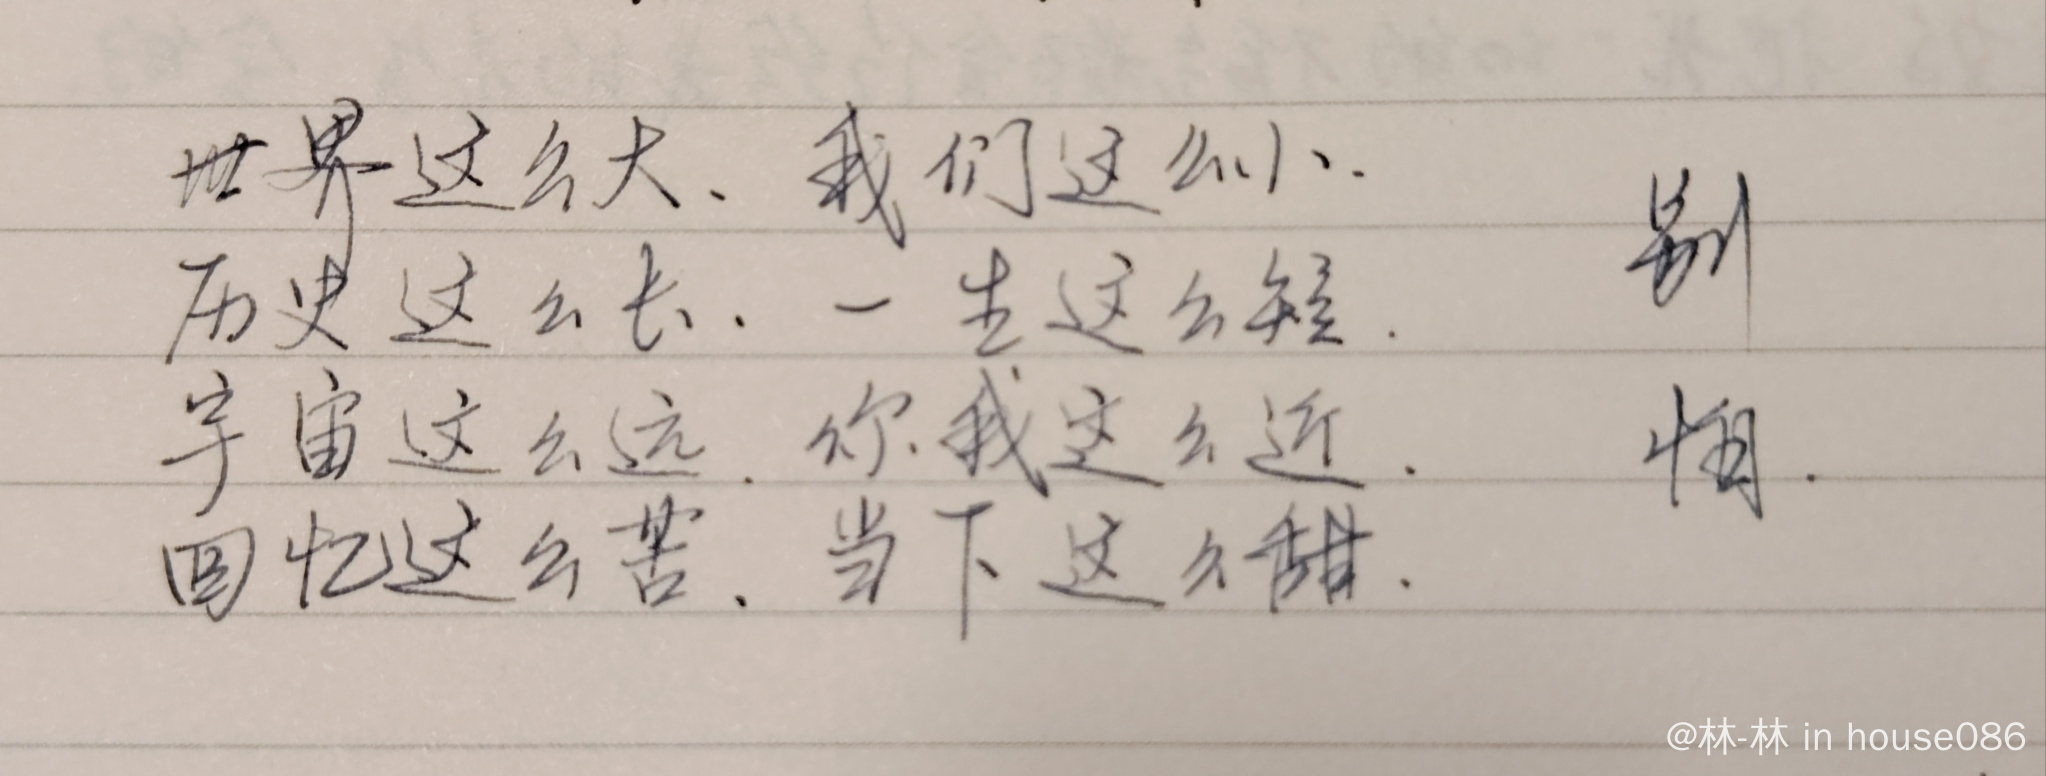 世界这么大、我们这么小.
历史这么长.一生这么短.
宇宙这么远.你我这么近.
回忆这么苦.当下这么甜.
别
怕.
@林-林 in house086